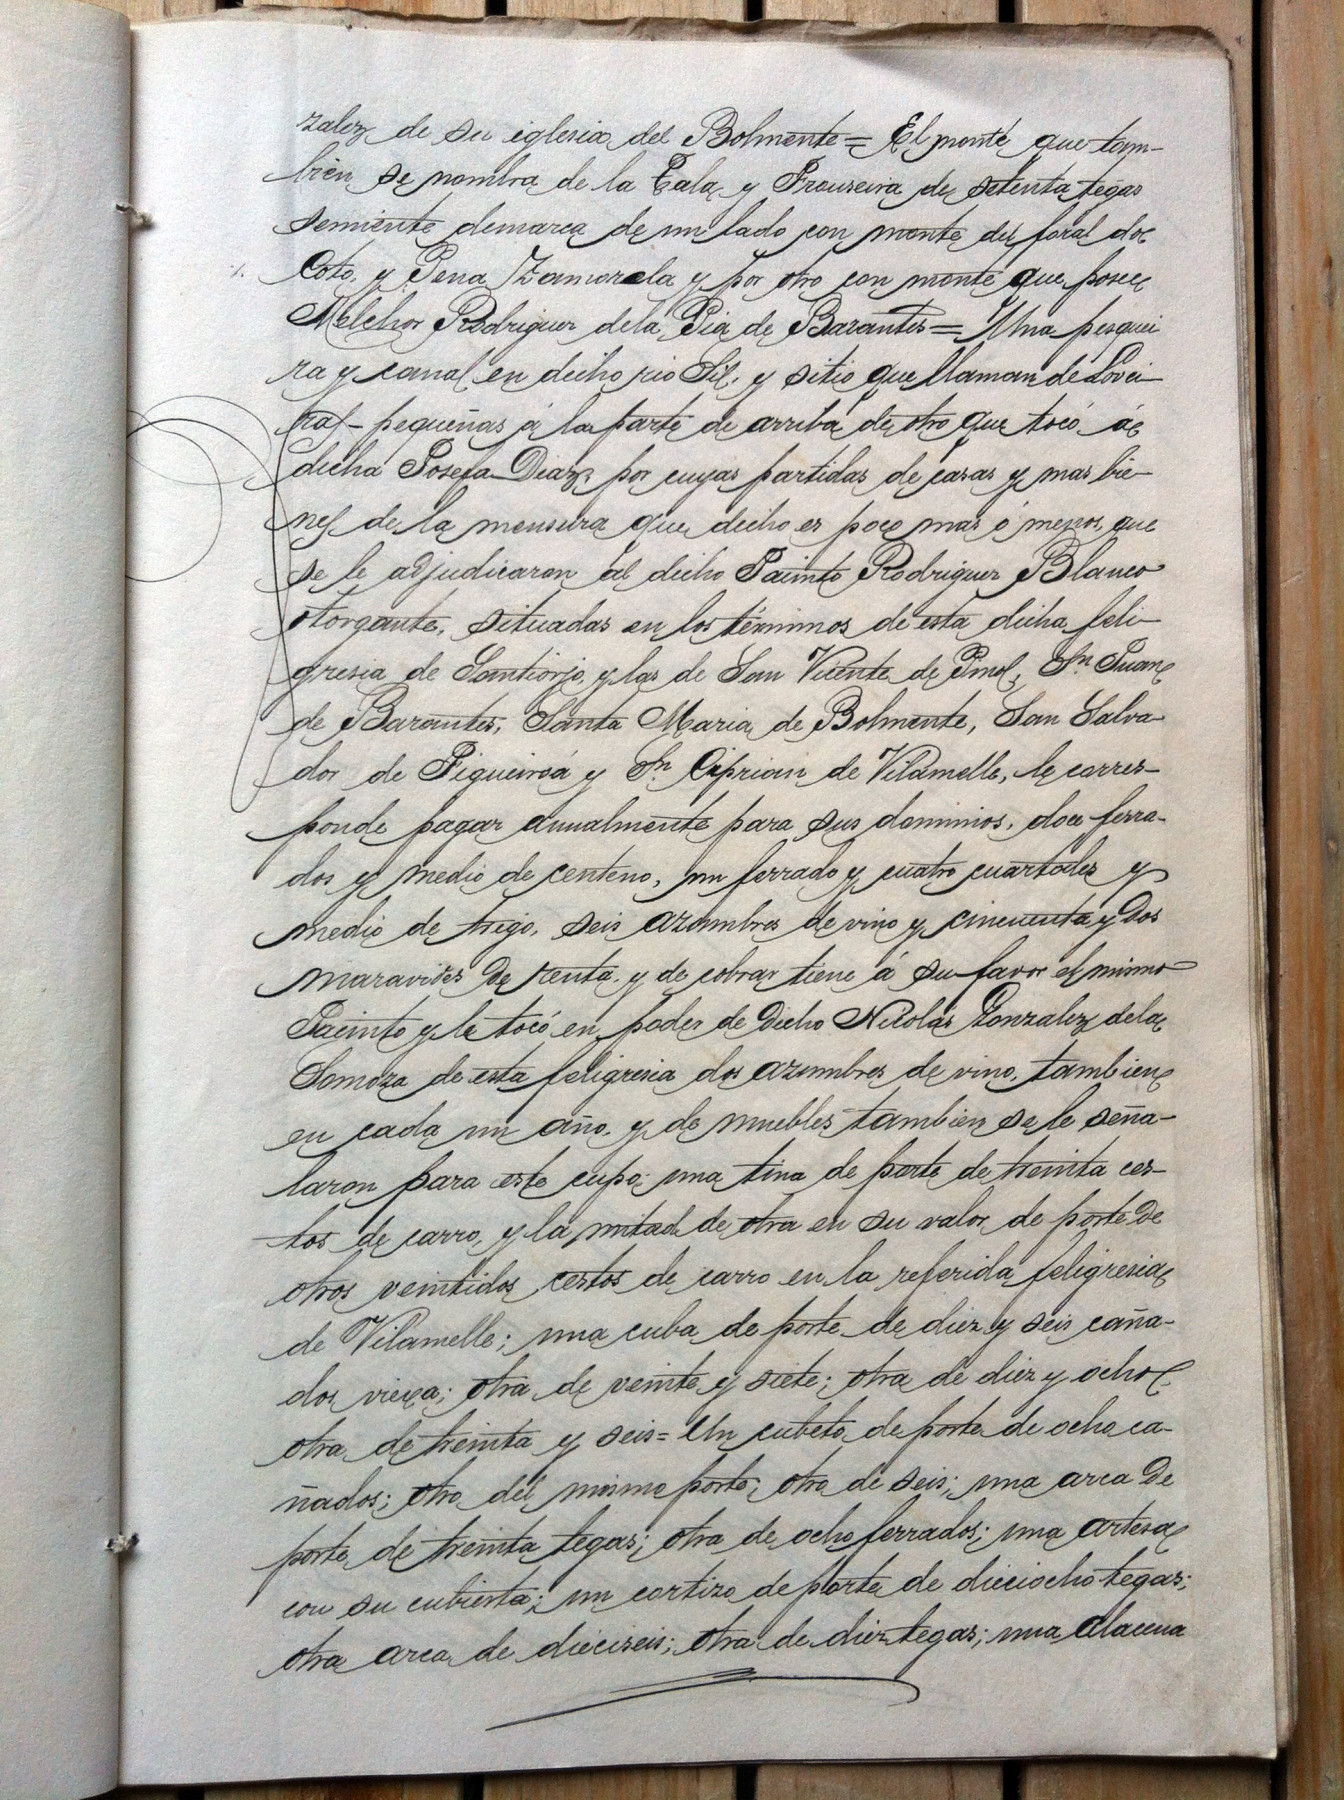 zalez de su iglesia del Bolmente = El monte que tam-
bien se nombra de la Tala y Frouseira de setenta tegas
semiente demarca de un lado con monte del foral do
Coto, y Pena Zamorela y por otro con monte que posee
Melchor Rodriguez dela Pia de Barantes = Una pesquei
ra y canal en dicho rio Sil, y sitio que llaman de Lovei-
ras- pequeñas á la parte de arriba de otro que tocó á
dicha Josefa Diaz, por cuyas partidas de casas y mas bie-
nes de la mensura que dicho es poco mas ó menos, que
se le adjudicaron al dicho Jacinto Rodriguez Blanco
otorgante, situadas en los términos de esta dicha feli-
gresia de Santiorjo, y las de San Vicente de Pinol, Sn. Juan
de Barantes, Santa Maria de Bolmente, San Salva-
dor de Figueiroá y Sn. Ciprian de Vilamelle, le corres-
ponde pagar anualmente para sus dominios, doce ferra-
dos y medio de centeno, un ferrado y cuatro cuartodes y
medio de trigo, seis azumbres de vino y cincuenta y dos
maravides de renta. y de cobrar tiene á su favor el mismo
Jacinto y le tocó en poder de dicho Nicolás Gonzalez dela
Somoza de esta feligresia dos azumbres de vino, tambien
en cada un año. y de muebles tambien se le seña-
laron para este cupo: una tina de porte de treinta ces-
tos de carro, y la mitad de otra en su valor, de porte de
otros veintidos cestos de carro en la referida feligresia
de Vilamelle; una cuba de porte de diez y seis caña-
dos vieja; otra de veinte y siete; otra de diez y ocho
otra de treinta y seis = Un cubeto de porte de ocho ca-
ñados; otro del mismo porte; otro de seis; una arca de
porte de treinta tegas; otra de ocho ferrados; una artesa
con su cubierta; un cortizo de porte de dieciocho tegas;
otra arca de dieciseis; otra de diez tegas; una alacena